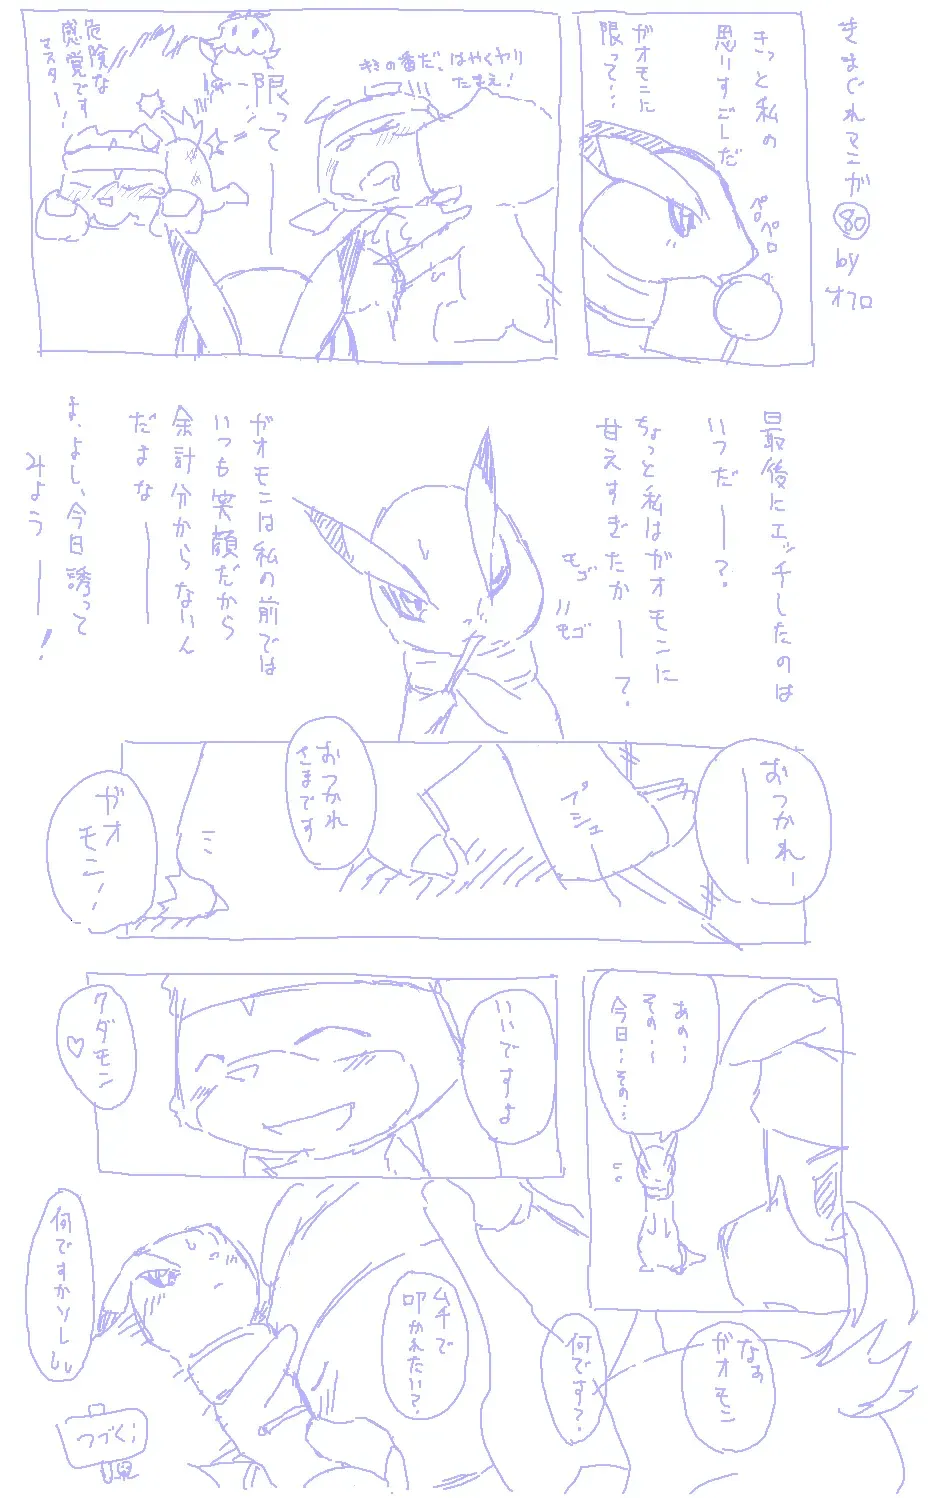 きまぐれマンガ 80 by オフロ
きっと私の
思いすごしだ
ガオモンに
限って…
ペロペロ
キミの番だ、はやくヤリ
たまえ!
限って——
危険な
感覚です
マスター!
最後にエッチしたのは
いつだー?
ちょっと私はガオモンに
甘えすぎたかー?
モゴ
モゴ
ガオモンは私の前では
いつも笑顔だから
余計分からないん
だよなー
ま、よし、今日誘って
みよう——!
おつかれー
プシュ
おつかれ
さまです
ガオ
モン!
あの…
その…
今日…その…
いいですよ
クダモン
♡
なぁ
ガオモン
何です?
ムチで
叩かれたい?
何ですかソレ
つづく;